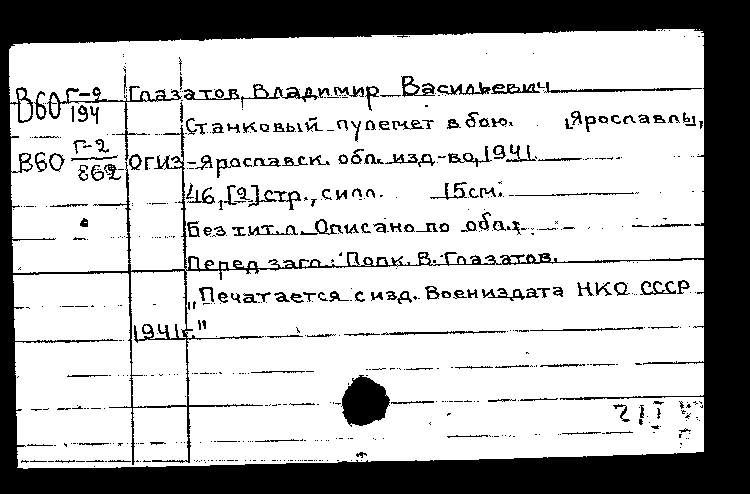 В60 Г-2/194 Глазатов, Владимир Васильевич
Станковый пулемет в бою. [Ярославль],
В60 Г-2/862 ОГИЗ-Ярославск. обл. изд-во, 1941.
46, [2] стр., с илл. 15см.
Без тит. л. Описано по обл.
Перед загл.: Полк. В. Глазатов.
„Печатается с изд. Воениздата НКО СССР
1941г."